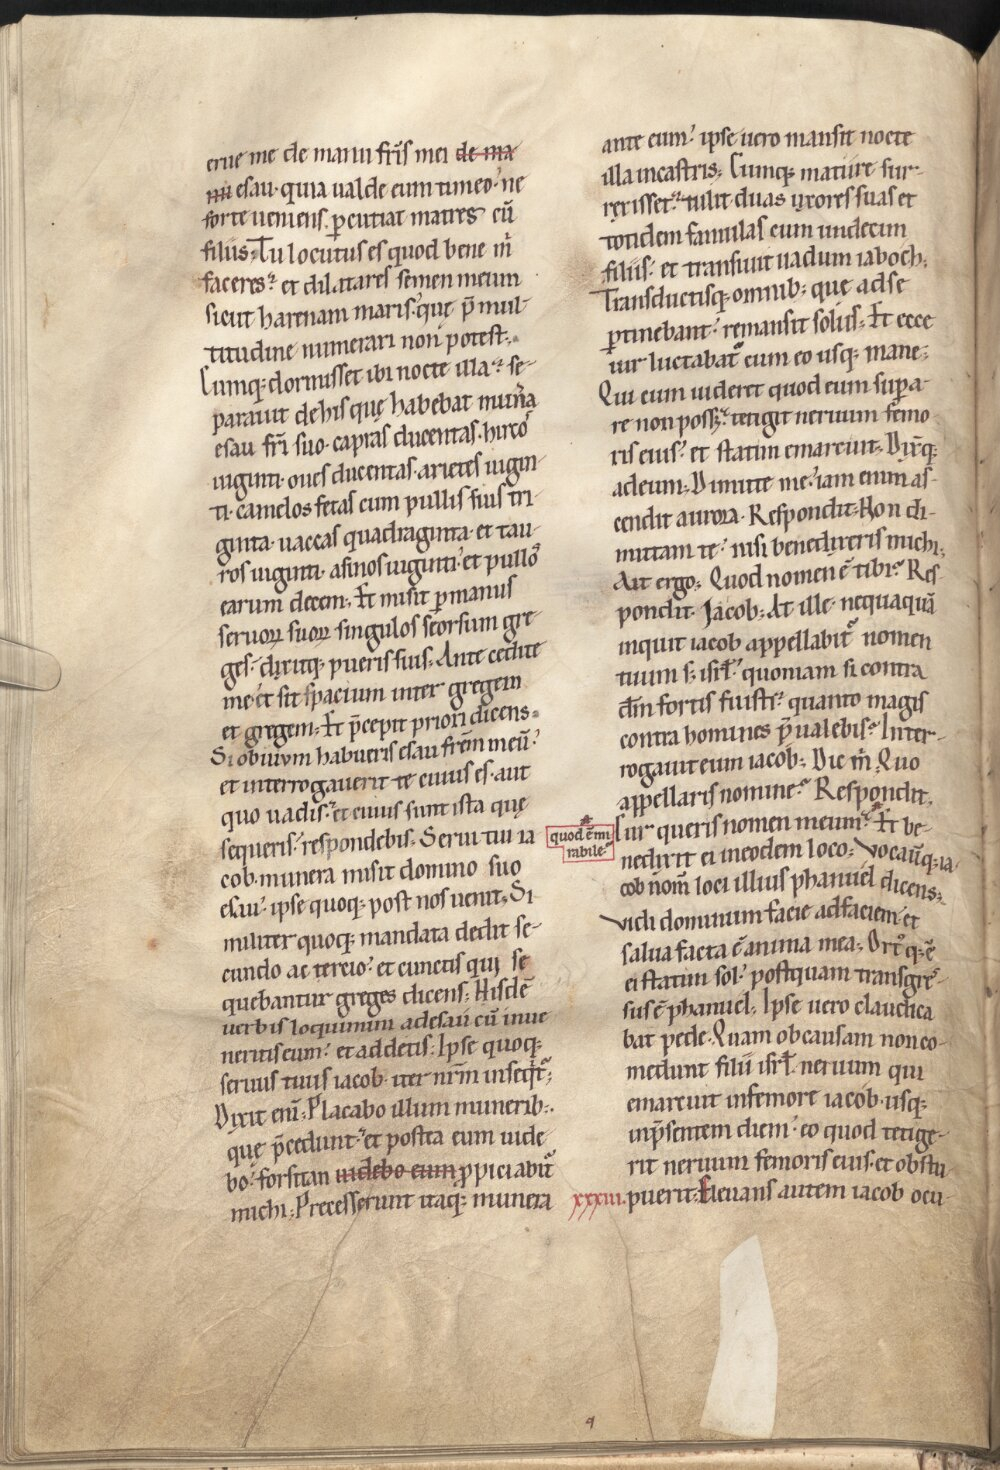 erue me de manu fr̄is mei de ma
nu esau· quia ualde eum timeo· ne
forte ueniens p̱cutiat matres cū
filiis· Tu locutus es quod bene m̄
faceres· et dilatares semen meum
sicut harenam maris· quę p̄ mul-
titudine numerari non potest·
Cumq; dormisset ibi nocte illa· se-
parauit de his quę habebat mun̄a
esau fr̄i suo· capras ducentas· hirco᷒
uiginti· oues ducentas· arietes uigin-
ti· camelos fetas cum pullis suis tri-
ginta· uaccas quadraginta· et tau-
ros uiginti· asinos uiginti· et pullo᷒
earum decem· Et misit p̱ manus
seruoꝝ suoꝝ singulos seorsum gre-
ges· dixitq; pueris suis· Ante cedite
me· et sit spacium inter gregem
et gregem· Et p̄cepit priori dicens·
Si obuium habueris esau fr̄em meū·
et interrogauerit te cuius es· aut
quo uadis· et cuius sunt ista quę
sequeris· respondebis· Serui tui ia
cob· munera misit domino suo
esau· ipse quoq; post nos uenit· Si-
militer quoq; mandata dedit se-
cundo ac tercio· et cunctis qui se
quebantur greges dicens· Hisdē
uerbis loquimini ad esau cū inue
neritis eum· et addetis· Ipse quoq;
seruus tuus iacob· iter nr̄m inseqt᷑;
Dixit enī· Placabo illum munerib;·
que p̄cedunt· et postea eum uide
bo· forsitan uidebo eum ꝓpiciabit᷑
michi· Precesserunt itaq; munera
ante eum· ipse uero mansit nocte
illa in castris· Cumq; mature sur-
rexisset· tulit duas uxores suas et
totidem famulas cum undecim
filiis· et transiuit uadum iaboch·
Transductisq; omnib; que ad se
p̱tinebant· remansit solus· Et ecce
uir luctabat᷑ cum eo usq; mane·
Qui cum uideret quod eum supa-
re non poss;· tetigit neruum femo
ris eius· et statim emarcuit· Dix̄q;
ad eum· Dimitte me· iam enim as-
cendit aurora· Respondit· Non di-
mittam te· nisi benedixeris michi·
Ait ergo· Quod nomen ē tibi· Res-
pondit· Iacob· At ille· nequaquā
inquit iacob appellabit᷑ nomen
tuum s; isrl̄· quoniam si contra
dm̄ fortis fuisti· quanto magis
contra homines p̄ualebis· Inter-
rogauit eum iacob· Dic m̄· Quo
appellaris nomine· Respondit·
quod ē mi
rabile·
Cur queris nomen meum· Et be-
nedixit ei in eodem loco· Vocauitq; ia
cob nom̄ loci illius phanuel dicens·
Vidi dominum facie ad faciem· et
salua facta ē anima mea· Ort᷒q; ē
ei statim sol· postquam transgre᷒-
sus ē phanuel· Ipse uero claudica
bat pede· Quam ob causam non co-
medunt filii isrl̄ neruum qui
emarcuit in femore iacob· usq;
in p̄sentem diem· eo quod tetige-
rit neruum femoris eius· et obstu-
xxxiii. puerit· Eleuans autem iacob ocu-